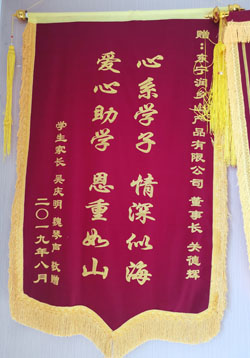 赠：东宁润乡土产品有限公司 董事长 关德辉
心系学子 情深似海
爱心助学 恩重如山
学生家长 吴庆明 魏琴声 敬赠
二〇一九年八月